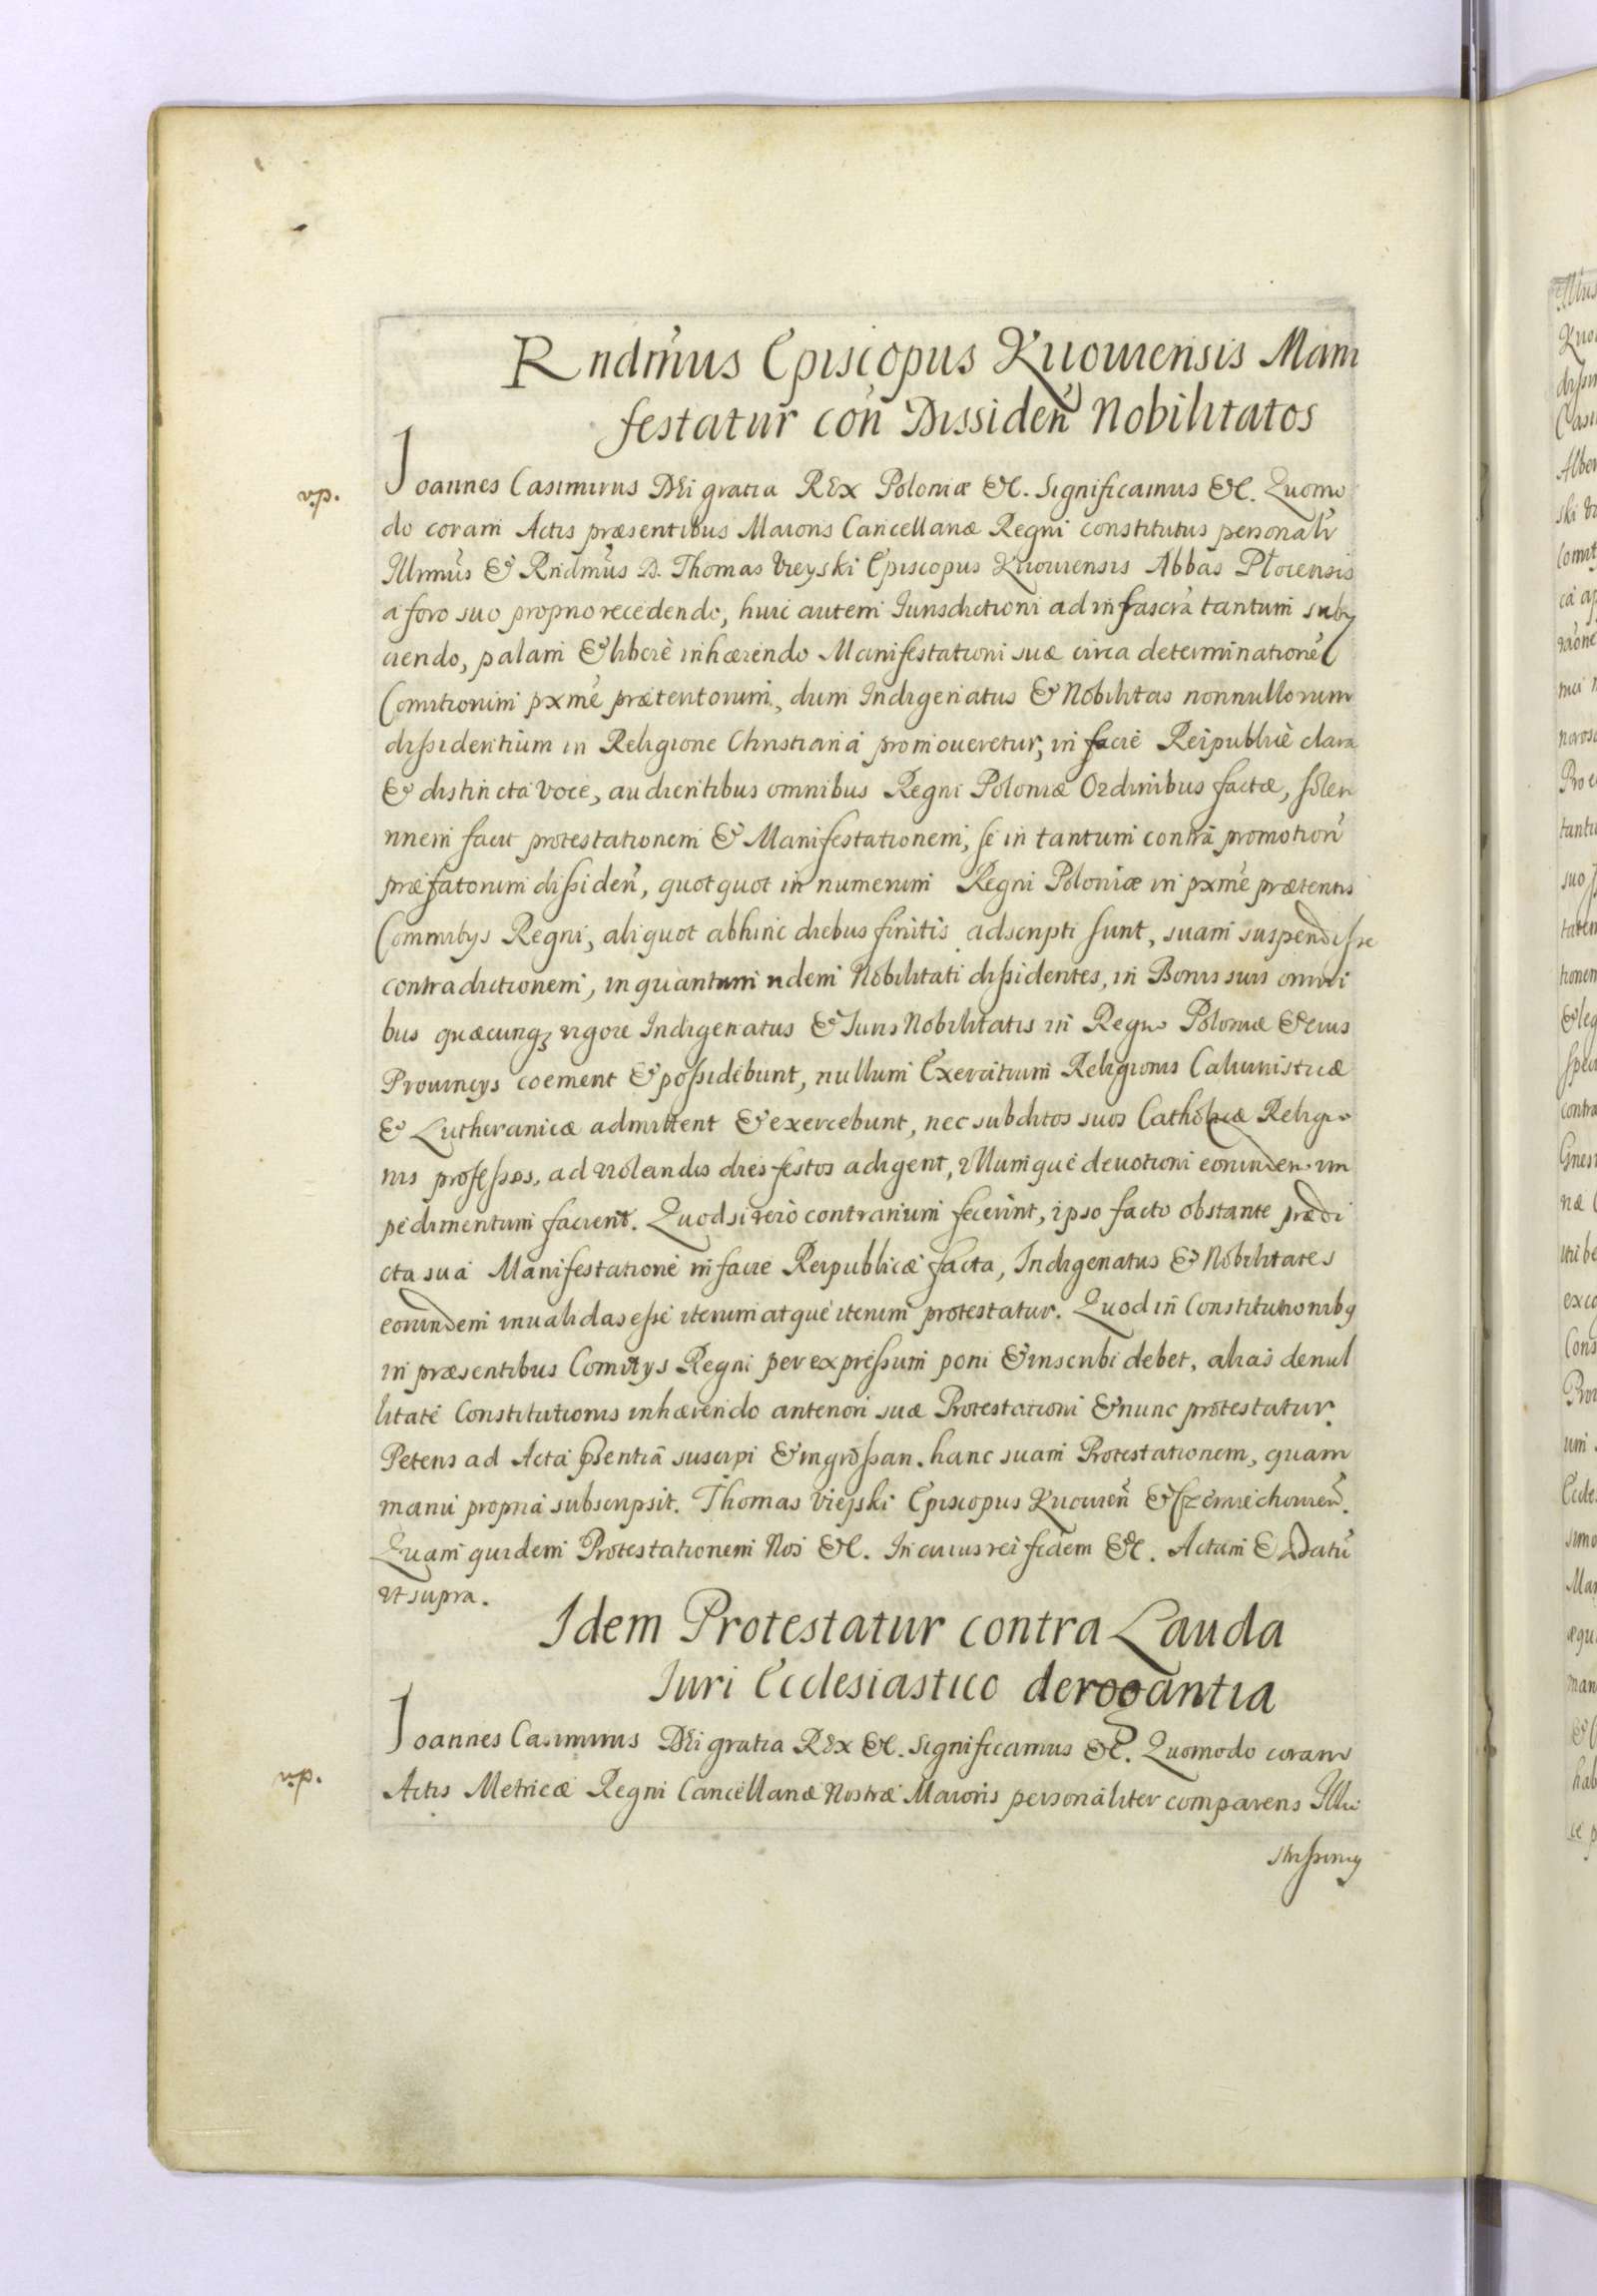 Rndmus Episcopus Kiiouiensis Mani
festatur con Dissiden Nobilitatos
v.p.
Ioannes Casimirus DEi gratia REx Poloniæ &c. Significamus &c. Quomo
do coram Actis præsentibus Maioris Cancellariæ Regni constitutus personalr
Illrmus & Rndmus D. Thomas Uieyski Episcopus Kiiouiensis Abbas Plocensis
a foro suo proprio recedendo, huic autem Iurisdictioni ad infrascra tantum subij
ciendo, palam & liberè inhærendo Manifestationi suæ circa determinationé
Comitiorum pxme prætentorum, dum Indigenatus & Nobilitas nonnullorum
dissidentium in Religione Christiana promoueretur, in facie Reipublicè clara
& distincta voce, audientibus omnibus Regni Poloniæ Ordinibus factæ, solen
nnem facit protestationem & Manifestationem, se in tantum contra promotion
præfatorum dissiden, quotquot in numerum Regni Poloniæ in pxme prætentis
Commitys Regni, aliquot abhinc diebus finitis adscripti sunt, suam suspendisse
contradictionem, in quantum ydem Nobilitati dissidentes, in Bonis suis omni
bus quæcunq3 vigore Indigenatus & Iuris Nobilitatis in Regno Poloniæ & eius
Prouincys coement & possidebunt, nullum Exercitium Religionis Caluinisticæ
& Lutheranicæ admittent & exercebunt, nec subditos suos Catholicæ Religio
nis professos, ad violandis dies festos adigent, vllumque deuotioni eorundem im
pedimentum facient. Quodsi verò contrarium fecerint, ipso facto obstante prædi
cta sua Manifestatione in facie Reipublicæ facta, Indigenatus & Nobilitates
eorundem inualidas esse iterum atque iterum protestatur. Quod in Constitutionibq
in præsentibus Comitys Regni per expressum poni & inscribi debet, alias denul
litate Constitutionis inhærendo anteriori suæ Protestationi & nunc protestatur.
Petens ad Acta psentia suscipi & ingrossari hanc suam Protestationem, quam
manu propria subscripsit. Thomas Vieyski Episcopus Kiiouien & Czerniechouien.
Quam quidem Protestationem Nos &c. In cuius rei fidem &c. Actum & Datu
vt supra.
Idem Protestatur contra Lauda
Iuri Ecclesiastico derogantia
v.p.
Ioannes Casimirus DEi gratia REx &c. Significamus &c. Quomodo coram
Actis Metricæ Regni Cancellariæ Nostræ Maioris personaliter comparens Illu
strissimq